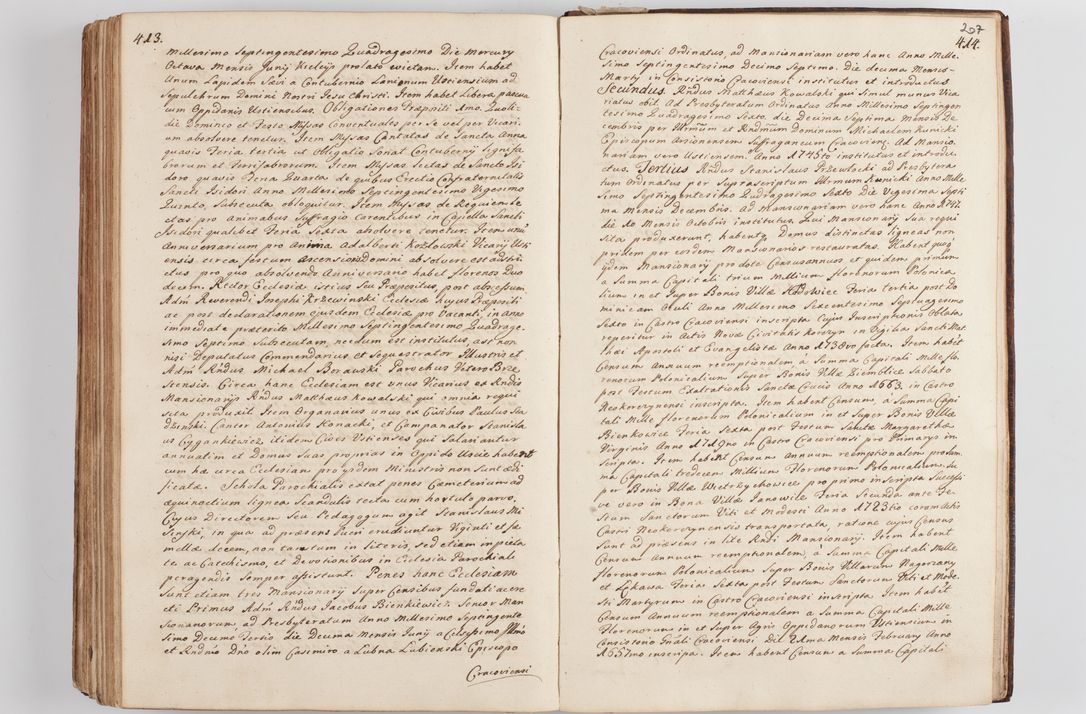 413.
Millesimo Septingentesimo Quadragesimo Die Mercurij
Octava Mensis Junij Kielcijs prolato evictam. Item habet
Unum Lapidem Sævi a Contubernio Lanionum Ustiensium ad
Sepulchrum Domini Nostri Jesu Christi. Item habet Libera pascua
cum Oppidanis Ustiensibus. Obligationes Præpositi Imo Quoli-
die Dominico et Festo Missas Conventuales per se vel per Vicari-
um absolvere tenetur. Item Missas Cantatas de Sancta Anna
quavis Feria tertia ut Obligatio Sonat Contubernij Lignifa-
brorum et Ferrifabrorum. Item Missas Lectas de Sancto Isi-
doro quavis Feria Quarta de quibus Erectio Confraternitatis
Sancti Isidori Anno Millesimo Septingentesimo Vigesimo
Quinto, Subsecuta obloquitur. Item Missas de Requiem Le-
ctas pro animabus Suffragio carentibus in Capella Sancti
Isidori qualibet Feria Sexta absolvere tenetur. Item unum
Anniversarium pro Anima Adalberti Kozłowski Vicarij Usti-
ensis circa festum Ascensionis Domini absolvere est adstri-
ctus pro quo absolvendo Anniversario habet florenos duo-
decem. Rector Ecclesiæ istius seu Præpositus post abscessum
Adm Reverendi Josephi Krzewinski Ecclesiæ hujus Præpositi
ac post declarationem ejusdem Ecclesiæ pro Vacanti in anno
immediate præterito Millesimo Septingentesimo Quadrage-
simo Septimo Subsecutam, necdum est institutus, ast non
nisi Deputatus Commendarius et Sequestrator Illustris et
Adm Rndus Michael Borawski Parochus Vetero Brze-
scensis. Circa hanc Ecclesiam est unus Vicarius ex Rndis
Mansionarijs Rndus Matthæus Kowalski qui omnia requi-
sita produxit. Item Organarius unus ex Civibus Paulus Sta-
dzinski. Cantor Antonius Konacki, et Campanator Stanisla-
us Cygankiewicz itidem Cives Ustienses qui Salariantur
annuatim et Domus Suas proprias in Oppido Uscie habent
cum hæ circa Ecclesiam pro ijsdem Ministris non Sunt ædi-
ficatæ. Schola Parochialis extat penes Cæmeterium ad
æquinoctium lignea Scandulis tecta cum hortulo parvo.
Cujus Directorem Seu Pedagogum agit Stanislaus Mi-
sinski, in qua ad præsens Sunt erudiuntur Viginti et fæ-
mellæ decem, non tantum in literis, sed etiam in pieta-
te ac Catechismo, et Devotionibus in Ecclesia Parochiali
peragendis Semper assistunt. Penes hanc Ecclesiam
Sunt etiam tres Mansionarij Super Censibus fundati ac ere-
cti Primus Adm Rndus Jacobus Bienkiewicz Senior Man-
sionariorum, ad Presbyteratum Anno Millesimo Septingente-
simo Decimo Tertio die Decima Mensis Junij a Celsissimo Illmo
et Rndmo Dno olim Casimiro a Lubna Lubienski Episcopo
Cracoviensi
207
414.
Cracoviensi Ordinatus, ad Mansionariam vero hanc Anno Mille-
simo Septingentesimo Decimo Septimo. die decima Mensis
Martij in Consistorio Cracoviensi institutus et introductus
Secundus. Rndus Matthæus Kowalski qui Simul munus Vica-
riatus obit. Ad Presbyteratum Ordinatus Anno Millesimo Septingen-
tesimo Quadragesimo Sexto die Decima Septima Mensis De-
cembris per Illrmum et Rndmum Dominum Michaelem Kunicki
Episcopum Arsionensem Suffraganeum Cracoviensem. Ad Mansio-
nariam vero Ustiensem. Anno 1745to institutus et introdu-
ctus. Tertius Rndus Stanislaus Przewłocki ad Presbytera-
tum Ordinatus per Suprascriptum Illrmum Kunicki Anno Mille-
simo Septingentesimo Quadragesimo Sexto Die Vigesima Septi-
ma Mensis Decembris. Ad Mansionariam vero hanc Anno 1747.
die 10 Mensis Octobris institutus. Qui Mansionarij Sua requi-
sita produxerunt, habentque Domus distinctas ligneas non
pridem per eosdem Mansionarios restauratas. Habent quoque
ijdem Mansionarij pro dote Census annuos et quidem primum
a Summa Capitali trium Millium florenorum Polonica-
lium in et Super Bonis Villæ Radowice Feria tertia post Do-
minicam Oculi Anno Millesimo Sexcentesimo Septuagesimo
Sexto in Castro Cracoviensi inscripta Cujus Inscriptionis Oblata
reperitur in Actis Novæ Civitatis Korczyn in Vigilia Sancti Mat-
thæi Apostoli et Evangelistæ Anno 1738vo facta. Item habent
Censum Annuum reemptionalem à Summa Capitali Mille flo-
renorum Polonicalium Super Bonis Villæ Ziemblice Sabbato
post Festum Exaltationis Sanctæ Crucis Anno 1663. in Castro
Neokorczynensi inscripta. Item habent Censum, à Summa Capi-
tali Mille florenorum Polonicalium in et Super Bonis Villæ
Bienkowice Feria Sexta post Festum Sanctæ Margarethæ
Virginis Anno 1719no in Castro Cracoviensi pro Primarys in-
scripta. Item habent Censum Annuum reemptionalem pro Sum-
ma Capitali tredecem Millium Florenorum Polonicalium. Su-
per Bonis Villæ Wietrzychowice pro primo inscripta Successi-
ve vero in Bona Villæ Janowice Feria Secunda ante Fe-
stum Sanctorum Viti et Modesti Anno 1723tio coram Actis
Castri Neokorczynensis transportata, ratione cujus Census
Sunt ad præsens in lite Rndi Mansionarij. Item habent
Censum Annuum reemptionalem, à Summa Capitali Mille
florenorum Polonicalium Super Bonis Villarum Nagorzany
et Łękawa Feria Sexta post Festum Sanctorum Viti et Mode-
sti Martyrum in Castro Cracoviensi inscripta. Item habent
Censum Annuum reemptionalem a Summa Capitali Mille
Florenorum in et Super Agris Oppidanorum Ustiensium in
Consistorio Gnali Cracoviensi Die Ulma Mensis February Anno
1657mo inscripta. Item habent Censum a Summa Capitali